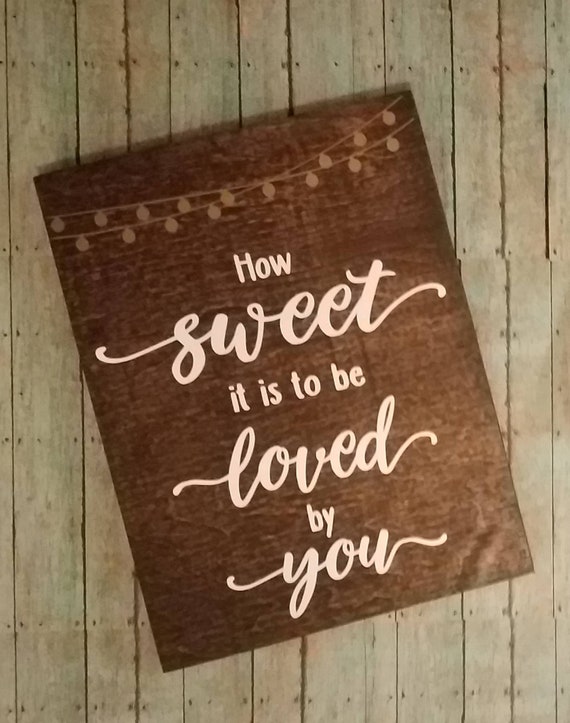 How
sweet
it is to be
loved
by
you